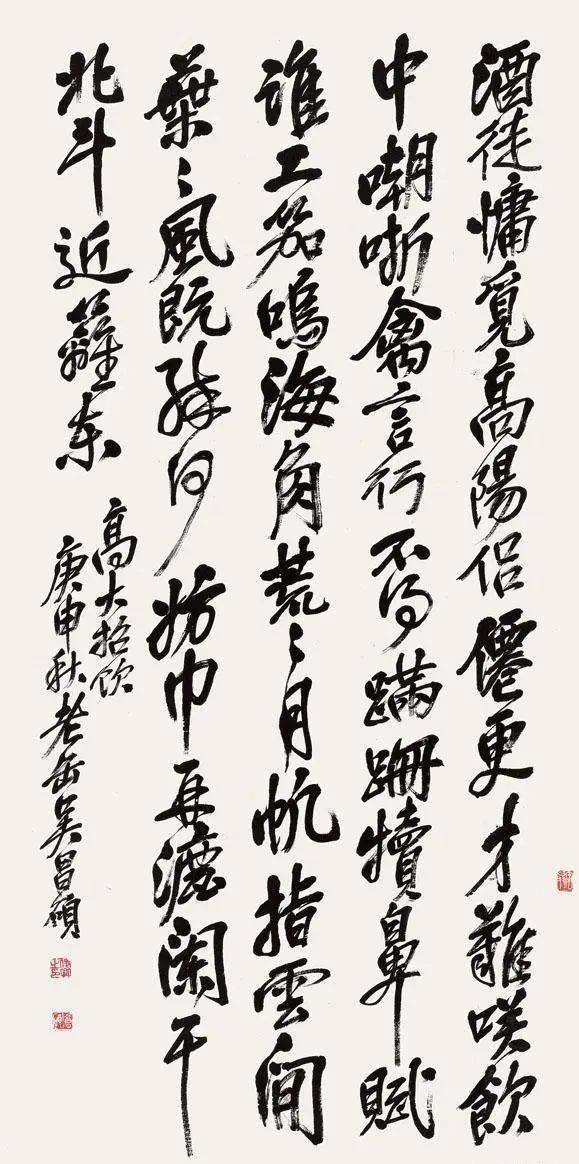 酒徒慵覓高陽侶僊更才難咲飲
中嘲哳禽言行不得蹣跚犢鼻賦
誰工笳鳴海角荒〻月帆指雲間
葉〻風既醉何妨巾再漉闌干
北斗近籬东
高大招飲
庚申秋老缶吳昌碩